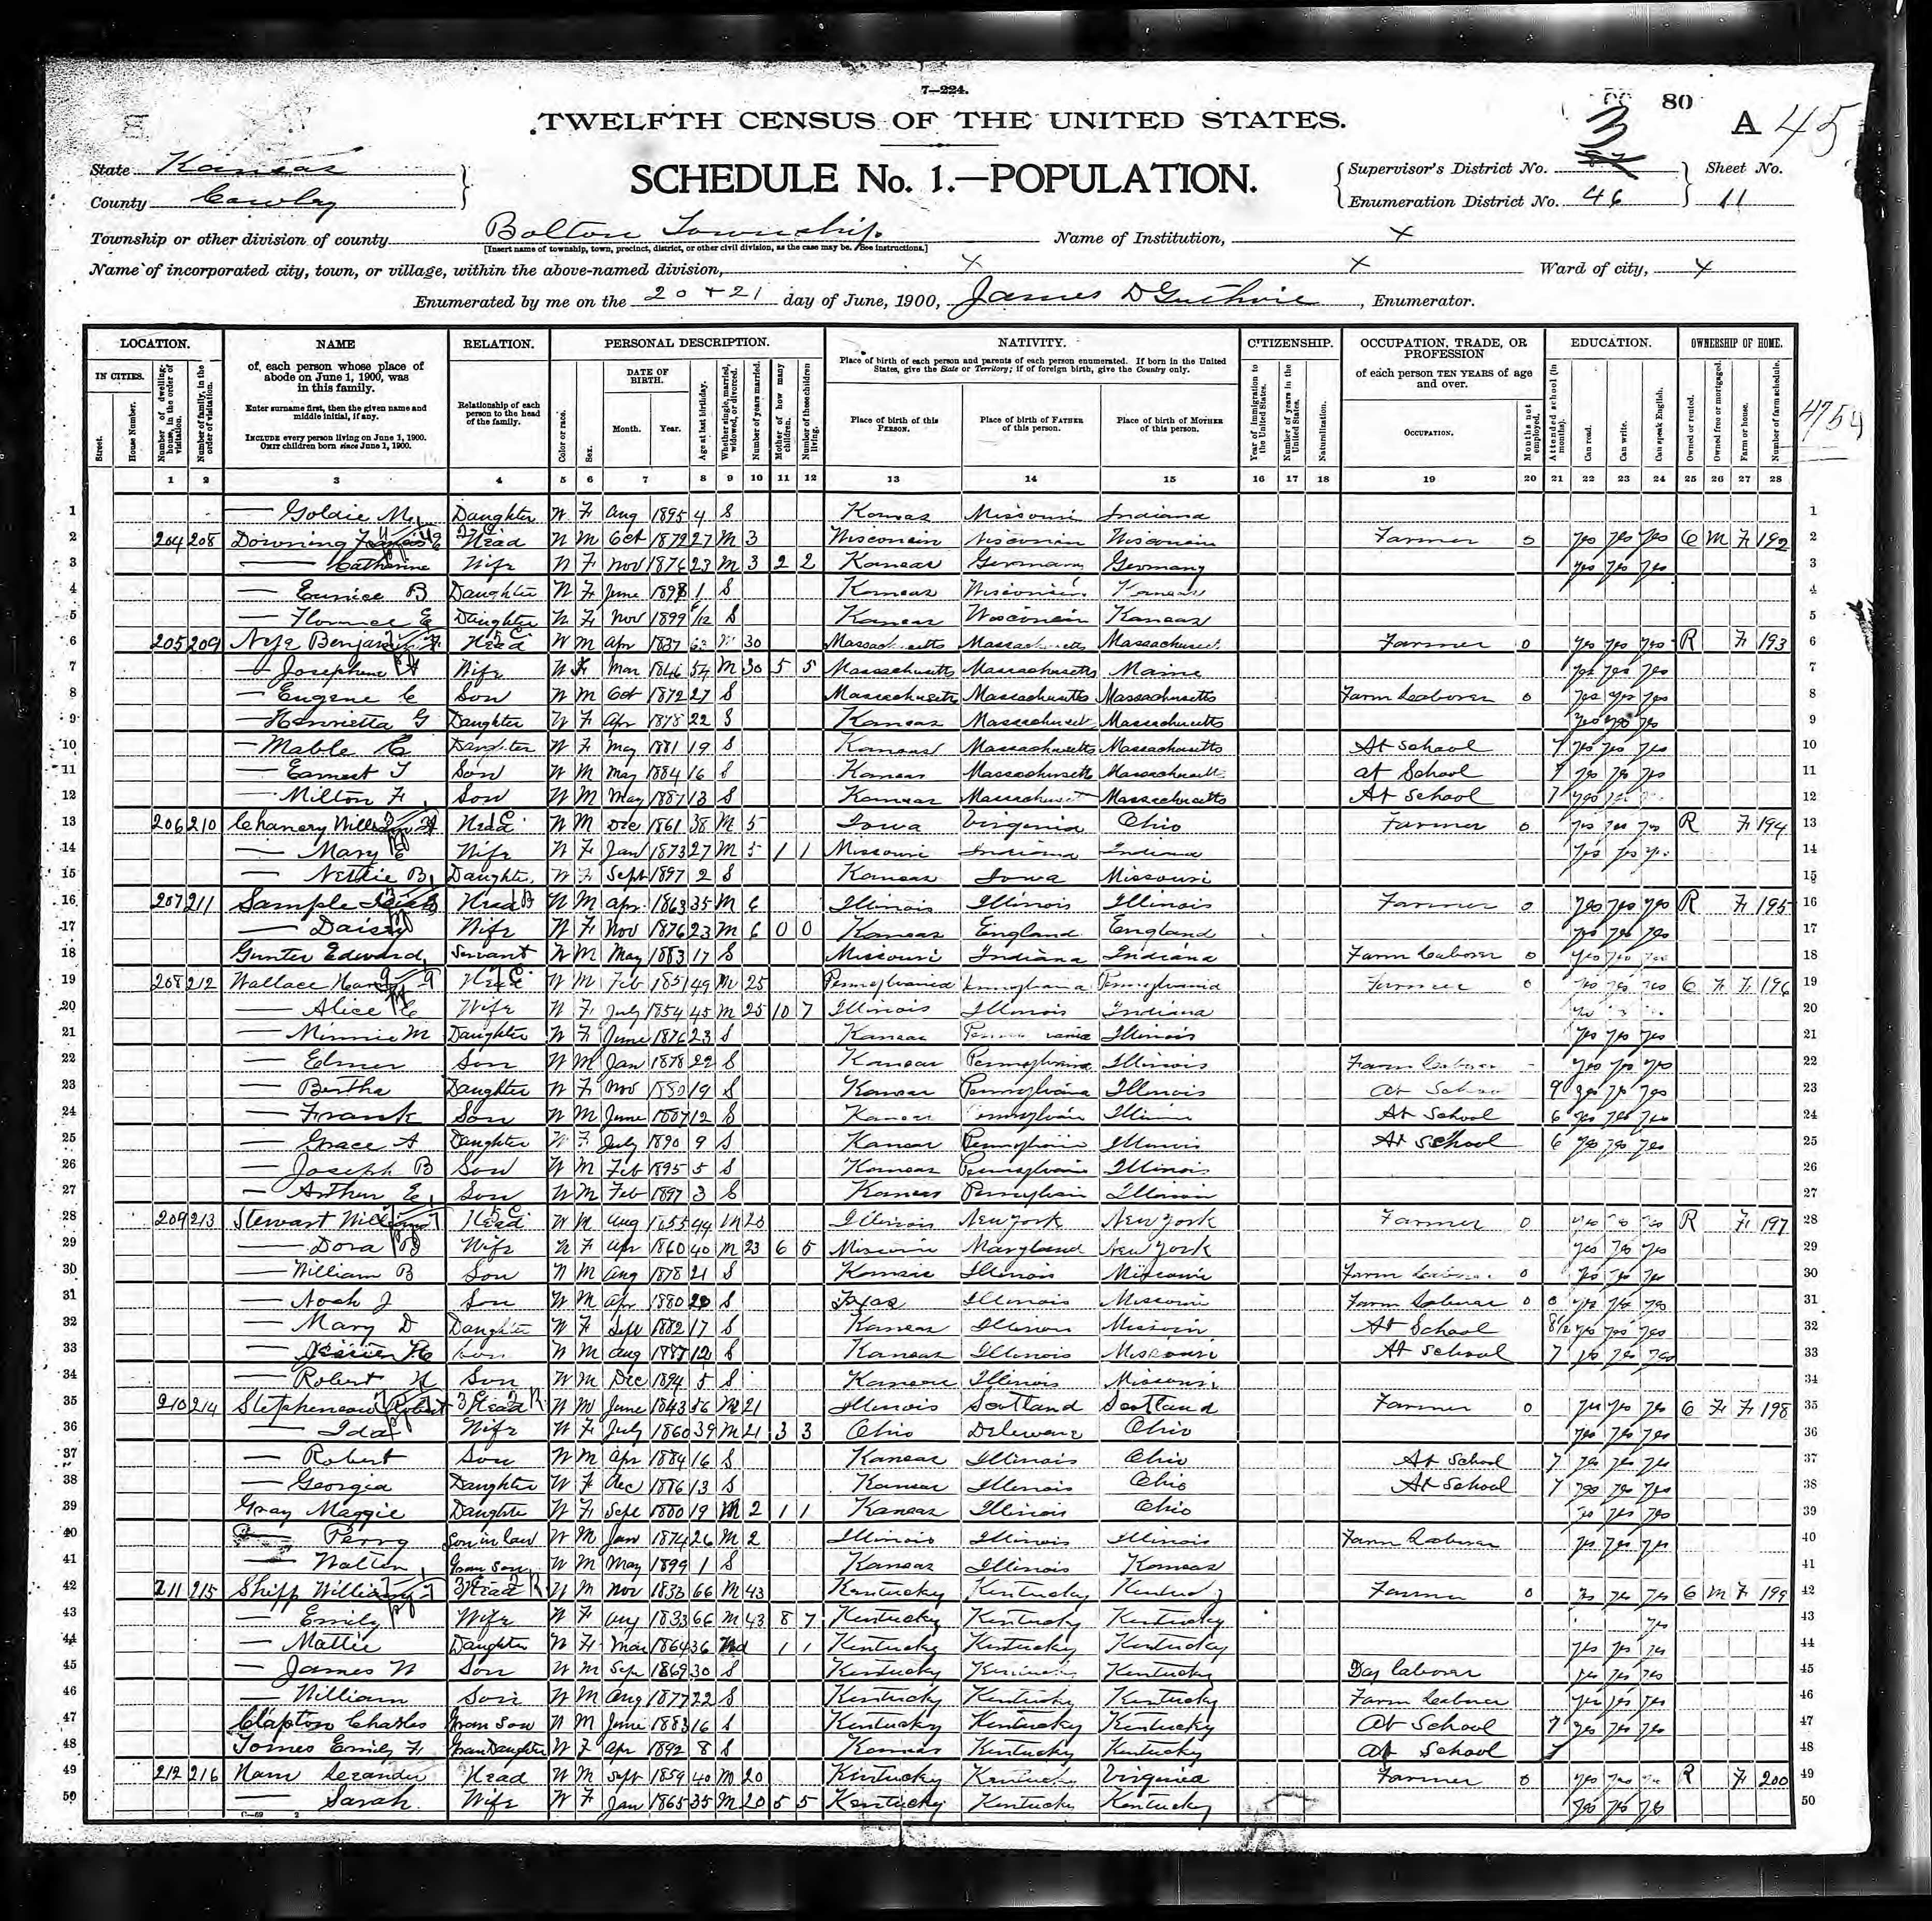 7—224.
80
TWELFTH CENSUS OF THE UNITED STATES.
3
A 45
State Kansas
County Cowley
SCHEDULE No. 1.—POPULATION.
Supervisor's District No.
Enumeration District No. 46
Sheet No.
11
Township or other division of county Bolton Township
[Insert name of township, town, precinct, district, or other civil division, as the case may be. See instructions.]
Name of Institution, X
Name of incorporated city, town, or village, within the above-named division, X X Ward of city, X
Enumerated by me on the 20 + 21 day of June, 1900, James D Guthrie, Enumerator.
LOCATION. NAME RELATION. PERSONAL DESCRIPTION. NATIVITY. CITIZENSHIP. OCCUPATION, TRADE, OR PROFESSION EDUCATION. OWNERSHIP OF HOME.
IN CITIES.
Street.
House Number.
Number of dwelling-house, in the order of visitation.
Number of family, in the order of visitation.
of each person whose place of abode on June 1, 1900, was in this family.
Enter surname first, then the given name and middle initial, if any.
INCLUDE every person living on June 1, 1900.
OMIT children born since June 1, 1900.
Relationship of each person to the head of the family.
Color or race.
Sex.
DATE OF BIRTH.
Month. Year.
Age at last birthday.
Whether single, married, widowed, or divorced.
Number of years married.
Mother of how many children.
Number of these children living.
Place of birth of each person and parents of each person enumerated. If born in the United States, give the State or Territory; if of foreign birth, give the Country only.
Place of birth of this PERSON.
Place of birth of FATHER of this person.
Place of birth of MOTHER of this person.
Year of immigration to the United States.
Number of years in the United States.
Naturalization.
of each person TEN YEARS of age and over.
OCCUPATION.
Months not employed.
Attended school (in months).
Can read.
Can write.
Can speak English.
Owned or rented.
Owned free or mortgaged.
Farm or house.
Number of farm schedule.
1 2 3 4 5 6 7 8 9 10 11 12 13 14 15 16 17 18 19 20 21 22 23 24 25 26 27 28
1 — Goldie M. Daughter W F Aug 1895 4 S Kansas Missouri Indiana 1
2 204 208 Downing Head W M Oct 1872 27 M 3 Wisconsin Wisconsin Wisconsin Farmer 0 yes yes yes O M F 192 2
3 — Catherine Wife W F Nov 1876 23 M 3 2 2 Kansas Germany Germany yes yes yes 3
4 — Eunice B Daughter W F June 1898 1 S Kansas Wisconsin Kansas 4
5 — Florence E Daughter W F Nov 1899 6/12 S Kansas Wisconsin Kansas 5
6 205 209 Nye Benjamin F Head W M Apr 1837 63 M 30 Massachusetts Massachusetts Massachusetts Farmer 0 yes yes yes R F 193 6
7 — Josephine H Wife W F Mar 1846 54 M 30 5 5 Massachusetts Massachusetts Maine yes yes yes 7
8 — Eugene C Son W M Oct 1872 27 S Massachusetts Massachusetts Massachusetts Farm Laborer 0 yes yes yes 8
9 — Henrietta G Daughter W F Apr 1878 22 S Kansas Massachusetts Massachusetts yes yes yes 9
10 — Mable Daughter W F May 1881 19 S Kansas Massachusetts Massachusetts At School 7 yes yes yes 10
11 — Earnest T Son W M May 1884 16 S Kansas Massachusetts Massachusetts at School 7 yes yes yes 11
12 — Milton F Son W M May 1887 13 S Kansas Massachusetts Massachusetts At School 7 yes yes 12
13 206 210 Chancery Head W M Dec 1861 38 M 5 Iowa Virginia Ohio Farmer 0 yes yes yes R F 194 13
14 — Mary E Wife W F Jan 1873 27 M 5 1 1 Missouri Indiana Indiana yes yes yes 14
15 — Nettie B Daughter W F Sept 1897 2 S Kansas Iowa Missouri 15
16 207 211 Sample Head W M Apr 1863 35 M 6 Illinois Illinois Illinois Farmer 0 yes yes yes R F 195 16
17 — Daisy Wife W F Nov 1876 23 M 6 0 0 Kansas England England yes yes yes 17
18 Gunter Edward Servant W M May 1883 17 S Missouri Indiana Indiana Farm Laborer 0 yes yes yes 18
19 208 212 Wallace Head W M Feb 1851 49 M 25 Pennsylvania Pennsylvania Pennsylvania Farmer 0 yes yes yes O F F 196 19
20 — Alice Wife W F July 1854 45 M 25 10 7 Illinois Illinois Indiana 20
21 — Minnie M Daughter W F June 1876 23 S Kansas Pennsylvania Illinois yes yes yes 21
22 — Elmer Son W M Jan 1878 22 S Kansas Pennsylvania Illinois Farm Laborer yes yes yes 22
23 — Bertha Daughter W F Nov 1880 19 S Kansas Pennsylvania Illinois at School 9 yes yes yes 23
24 — Frank Son W M June 1887 12 S Kansas Pennsylvania Illinois At School 6 yes yes yes 24
25 — Grace A Daughter W F July 1890 9 S Kansas Pennsylvania Illinois At School 6 yes yes yes 25
26 — Joseph B Son W M Feb 1895 5 S Kansas Pennsylvania Illinois 26
27 — Arthur E Son W M Feb 1897 3 S Kansas Pennsylvania Illinois 27
28 209 213 Stewart Head W M Aug 1855 44 M 20 Illinois New York New York Farmer 0 yes R F 197 28
29 — Dora Wife W F Apr 1860 40 M 23 6 5 Missouri Maryland New York yes yes yes 29
30 — William B Son W M Aug 1878 21 S Kansas Illinois Missouri Farm Laborer 0 yes yes yes 30
31 — Noah J Son W M Apr 1880 20 S Texas Illinois Missouri Farm Laborer 0 0 yes yes yes 31
32 — Mary D Daughter W F Sept 1882 17 S Kansas Illinois Missouri At School 8 1/2 yes yes yes 32
33 — Son W M Aug 1887 12 S Kansas Illinois Missouri At School 7 yes yes yes 33
34 — Robert H Son W M Dec 1894 5 S Kansas Illinois Missouri 34
35 210 214 Stephenson Robert Head W M June 1843 56 M 21 Illinois Scotland Scotland Farmer 0 yes yes yes O F F 198 35
36 — Ida Wife W F July 1860 39 M 21 3 3 Ohio Deleware Ohio yes yes yes 36
37 — Robert Son W M Apr 1884 16 S Kansas Illinois Ohio At School 7 yes yes yes 37
38 — Georgia Daughter W F Dec 1886 13 S Kansas Illinois Ohio At School 7 yes yes yes 38
39 Gray Maggie Daughter W F Sept 1880 19 M 2 1 1 Kansas Illinois Ohio yes yes yes 39
40 — Perry Son in law W M Jan 1874 26 M 2 Illinois Illinois Illinois Farm Laborer yes yes yes 40
41 — Walter Gran Son W M May 1899 1 S Kansas Illinois Kansas 41
42 211 215 Shipp William T Head W M Nov 1833 66 M 43 Kentucky Kentucky Kentucky Farmer 0 yes yes yes O M F 199 42
43 — Emily Wife W F Aug 1833 66 M 43 8 7 Kentucky Kentucky Kentucky yes 43
44 — Mattie Daughter W F Mar 1864 36 Wd 1 1 Kentucky Kentucky Kentucky yes yes yes 44
45 — James W Son W M Sep 1869 30 S Kentucky Kentucky Kentucky Day Laborer yes yes yes 45
46 — William Son W M Aug 1877 22 S Kentucky Kentucky Kentucky Farm Laborer yes yes yes 46
47 Clapton Charles Gran Son W M June 1883 16 S Kentucky Kentucky Kentucky At School 7 yes yes yes 47
48 Emily F. Gran Daughter W F Apr 1892 8 S Kansas Kentucky Kentucky At School 48
49 212 216 Head W M Sept 1859 40 M 20 Kentucky Kentucky Virginia Farmer 0 yes yes R F 200 49
50 — Sarah Wife W F Jan 1865 35 M 20 5 5 Kentucky Kentucky Kentucky yes yes yes 50